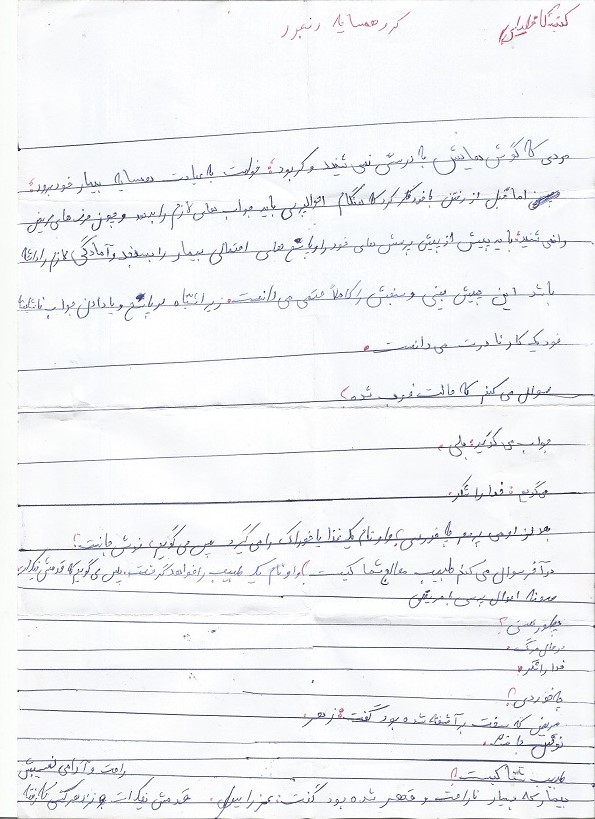 کر و همسایه رنجور
مردی که گوش هایش به درستی نمی شنید و کر بود؛ خواست به عیادت همسایه بیمار خود برود؛
اما قبل از رفتن با خود فکر کرد که هنگام احوالپرسی باید جواب های لازم را بدهد و چون حرف های مریض
را نمی شنید؛ باید پیش از پیش پرسش های خود را و پاسخ های احتمالی بیمار را بسنجد و آمادگی لازم را داشته
باشد این پیش بینی و سنجش را کاملاً حتمی می دانست؛ زیرا اشتباه در پاسخ و یا دادن جواب
خود یک کار نادرست می دانست.
سوال می کنم که حالت خوب شده؟
جواب می گوید: بلی.
می گویم: خدا را شکر.
بعد از او می پرسم چه خوردی؟ و او نام یک غذا یا خوراک را می گیرد پس می گویم، نوش جانت؛
در آخر سوال می کنم طبیب معالج شما کیست؟ و او نام یک طبیب را خواهد گرفت، پس می گویم که قدمش نیک
نمونه احوال پرسی با مریض
چطور هستی؟
در حال مرگ.
خدا را شکر.
چه خوردی؟
مریض که سخت برآشفته شده بود گفت: زهر.
نوش باد.
طبیب کیست؟ راحت و آرامی نصیبش
بیمار که بسیار ناراحت و قهر شده بود گفت: عزراییل. قدمش نیک است